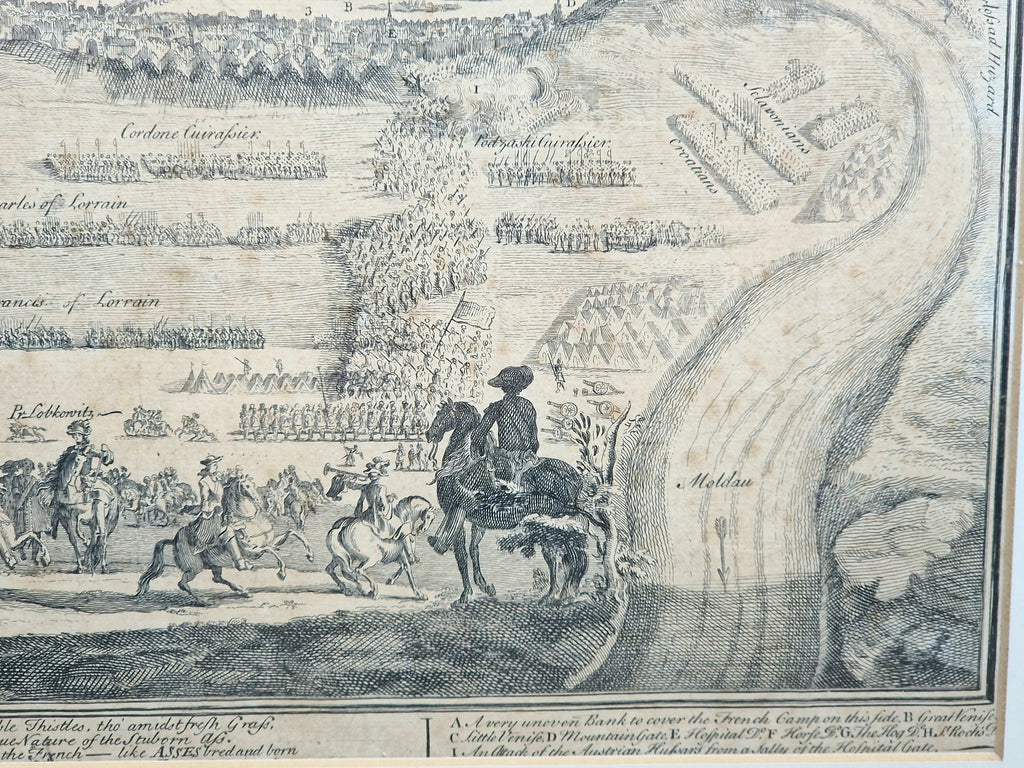 3 B D
E
I
Cordone Cuiraſsier.
Podzaski Cuiraſsier.
Sclavonians
Croatians
arles of Lorrain
rancis of Lorrain
Pr. Lobkowitz
Moldau
Huzard
ble Thistles, tho' amidst fresh Graſs,
ue Nature of the Stuborn Aſs.
the French — like ASSES bred and born
A. A very uneven Bank to cover the French Camp on this side, B Great Veniſe,
C. Little Veniſe, D Mountain Gate, E Hospital D.º F Horſe D.º G. The Hog D.º H. S.t Roch's D
I. An Attack of the Austrian Huſsars from a Sally of the Hoſpital Gate.